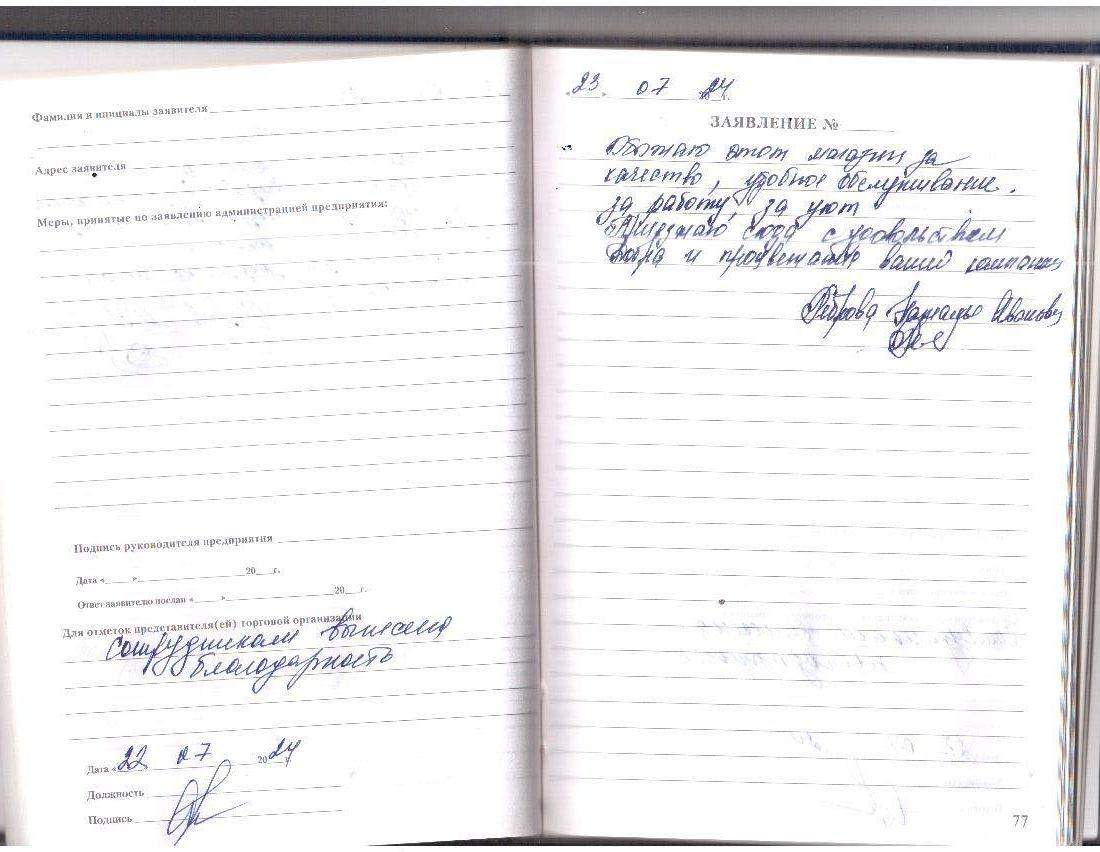 Фамилия и инициалы заявителя
Адрес заявителя
Меры, принятые по заявлению администрацией предприятия:
Подпись руководителя предприятия
Дата «____»____________20___г.
Ответ заявителю послан «____»____________20___г.
Для отметок представителя(ей) торговой организации
Сотрудникам вынесена
благодарность
Дата «22 07 2024
Должность
Подпись
23 07 24 г.
ЗАЯВЛЕНИЕ №
Обожаю этот магазин за
качество, удобное обслуживание.
за работу, за уют
Приезжаю сюда с удовольствием
Добра и процветания вашей компании
77